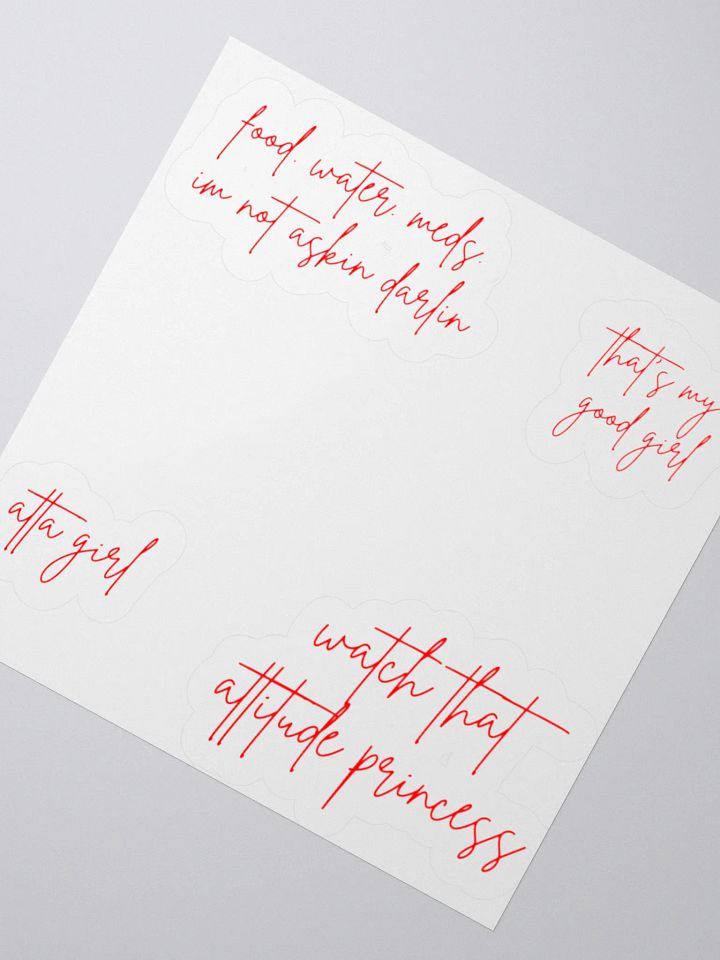 food. water. meds.
im not askin darlin
that's my
good girl
atta girl
watch that
attitude princess